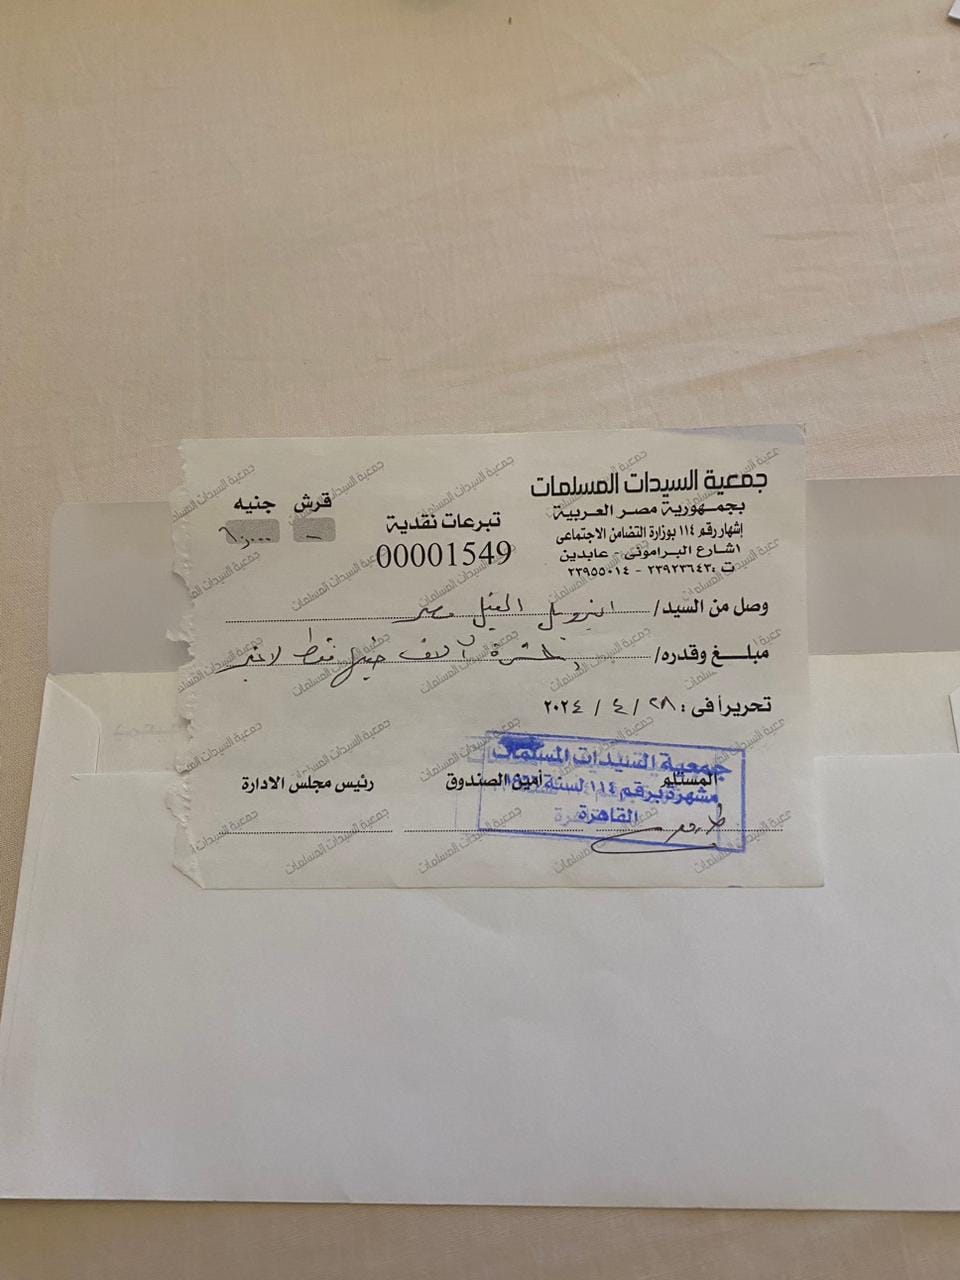 جمعية السيدات المسلمات
بجمهورية مصر العربية
إشهار رقم ١١٤ بوزارة التضامن الاجتماعى
١شارع البرامونى - عابدين
ت : ٢٣٩٢٣٦٤٣ - ٢٣٩٥٥٠١٤
تبرعات نقدية
00001549
قرش جنيه
-
وصل من السيد/ مصر
مبلغ وقدره/ عشرة آلاف جنيه فقط لا غير
تحريرا فى : ٢٨ / ٤ / ٢٠٢٤
المستلم أمين الصندوق رئيس مجلس الادارة
جمعية السيدات المسلمات
مشهرة برقم ١١٤ لسنة
القاهرة
جمعية السيدات المسلمات